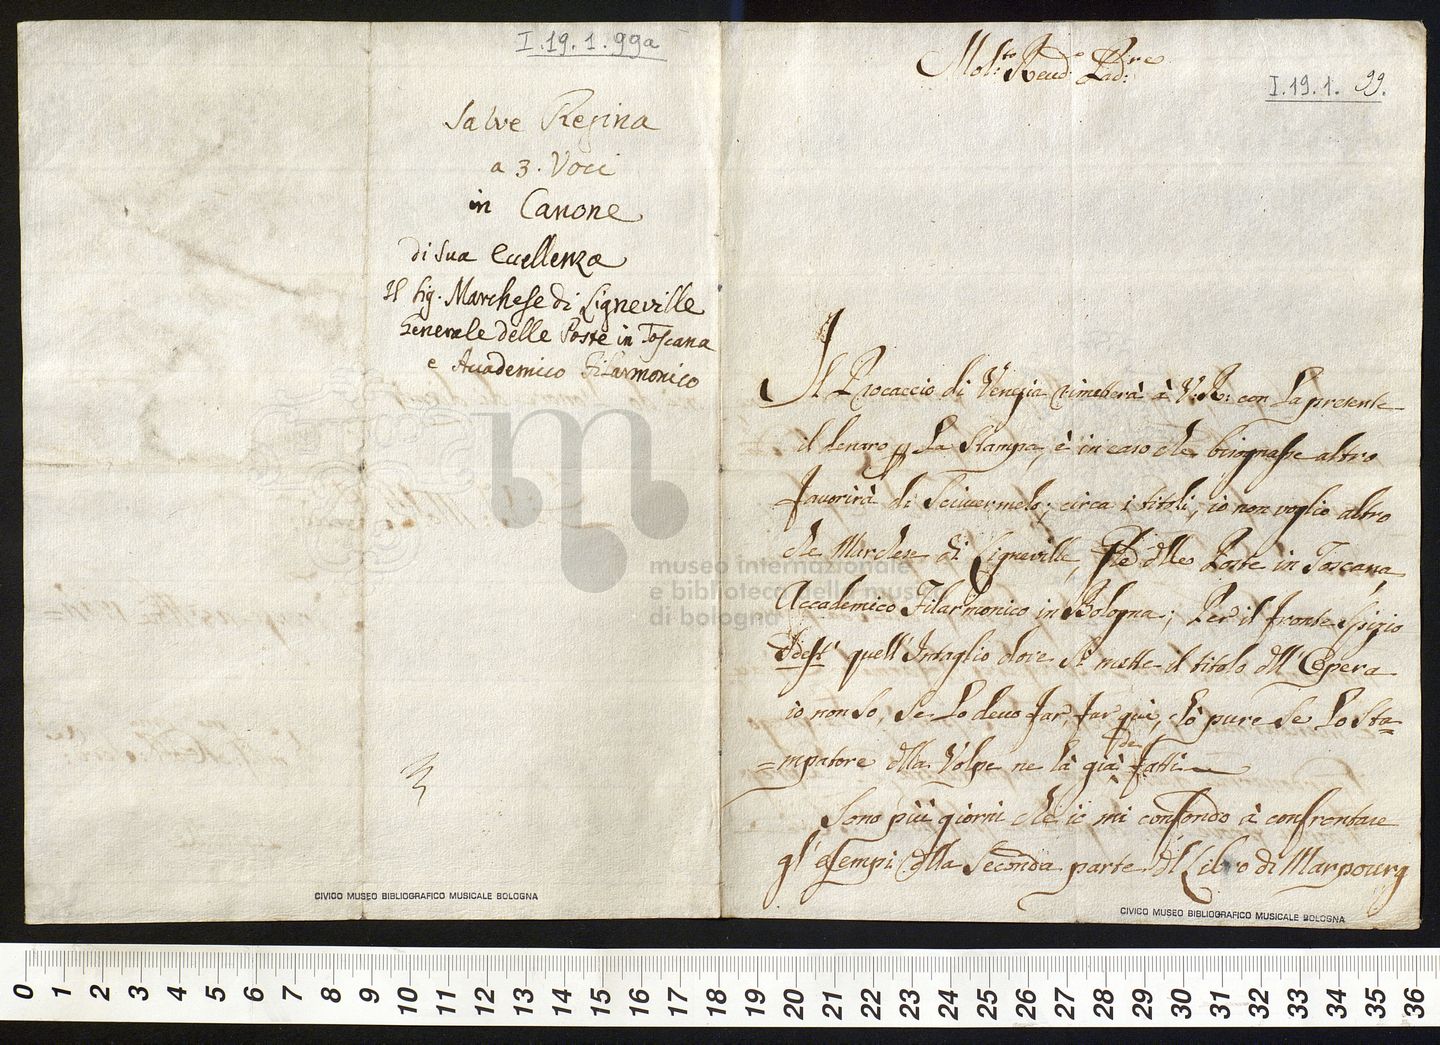 I.19.1.99a
Salve Regina
a 3. Voci
in Canone
di sua Eccellenza
Il Sig. Marchese di Ligneville
Generale delle Poste in Toscana
e Accademico Filarmonico
CIVICO MUSEO BIBLIOGRAFICO MUSICALE BOLOGNA
Mol:to Reud:o Pad:re
I.19.1. 99.
Il Procaccio di Venezia rimeterà à V: R: con la presente
il denaro La Stampa, è in caso che bisognasse altro
favorirà di Scrivermelo; circa i titoli, io non voglio altro
che Marchese di Ligneville dlle Poste in Toscana,
Accademico Filarmonico in Bologna; Per il fronte spizio
quell' Intaglio dove si mette il titolo dll' Opera
io non so, se lo devo far, far quì, ò pure se lo Sta=
=mpatore dlla Volpe ne hà già de fatti
Sono più giorni che io mi confondo à confrontare
gl' esempi dlla Seconda parte dl Libro di Marpourg
museo internazionale
e biblioteca della musica
di bologna
CIVICO MUSEO BIBLIOGRAFICO MUSICALE BOLOGNA
0 1 2 3 4 5 6 7 8 9 10 11 12 13 14 15 16 17 18 19 20 21 22 23 24 25 26 27 28 29 30 31 32 33 34 35 36